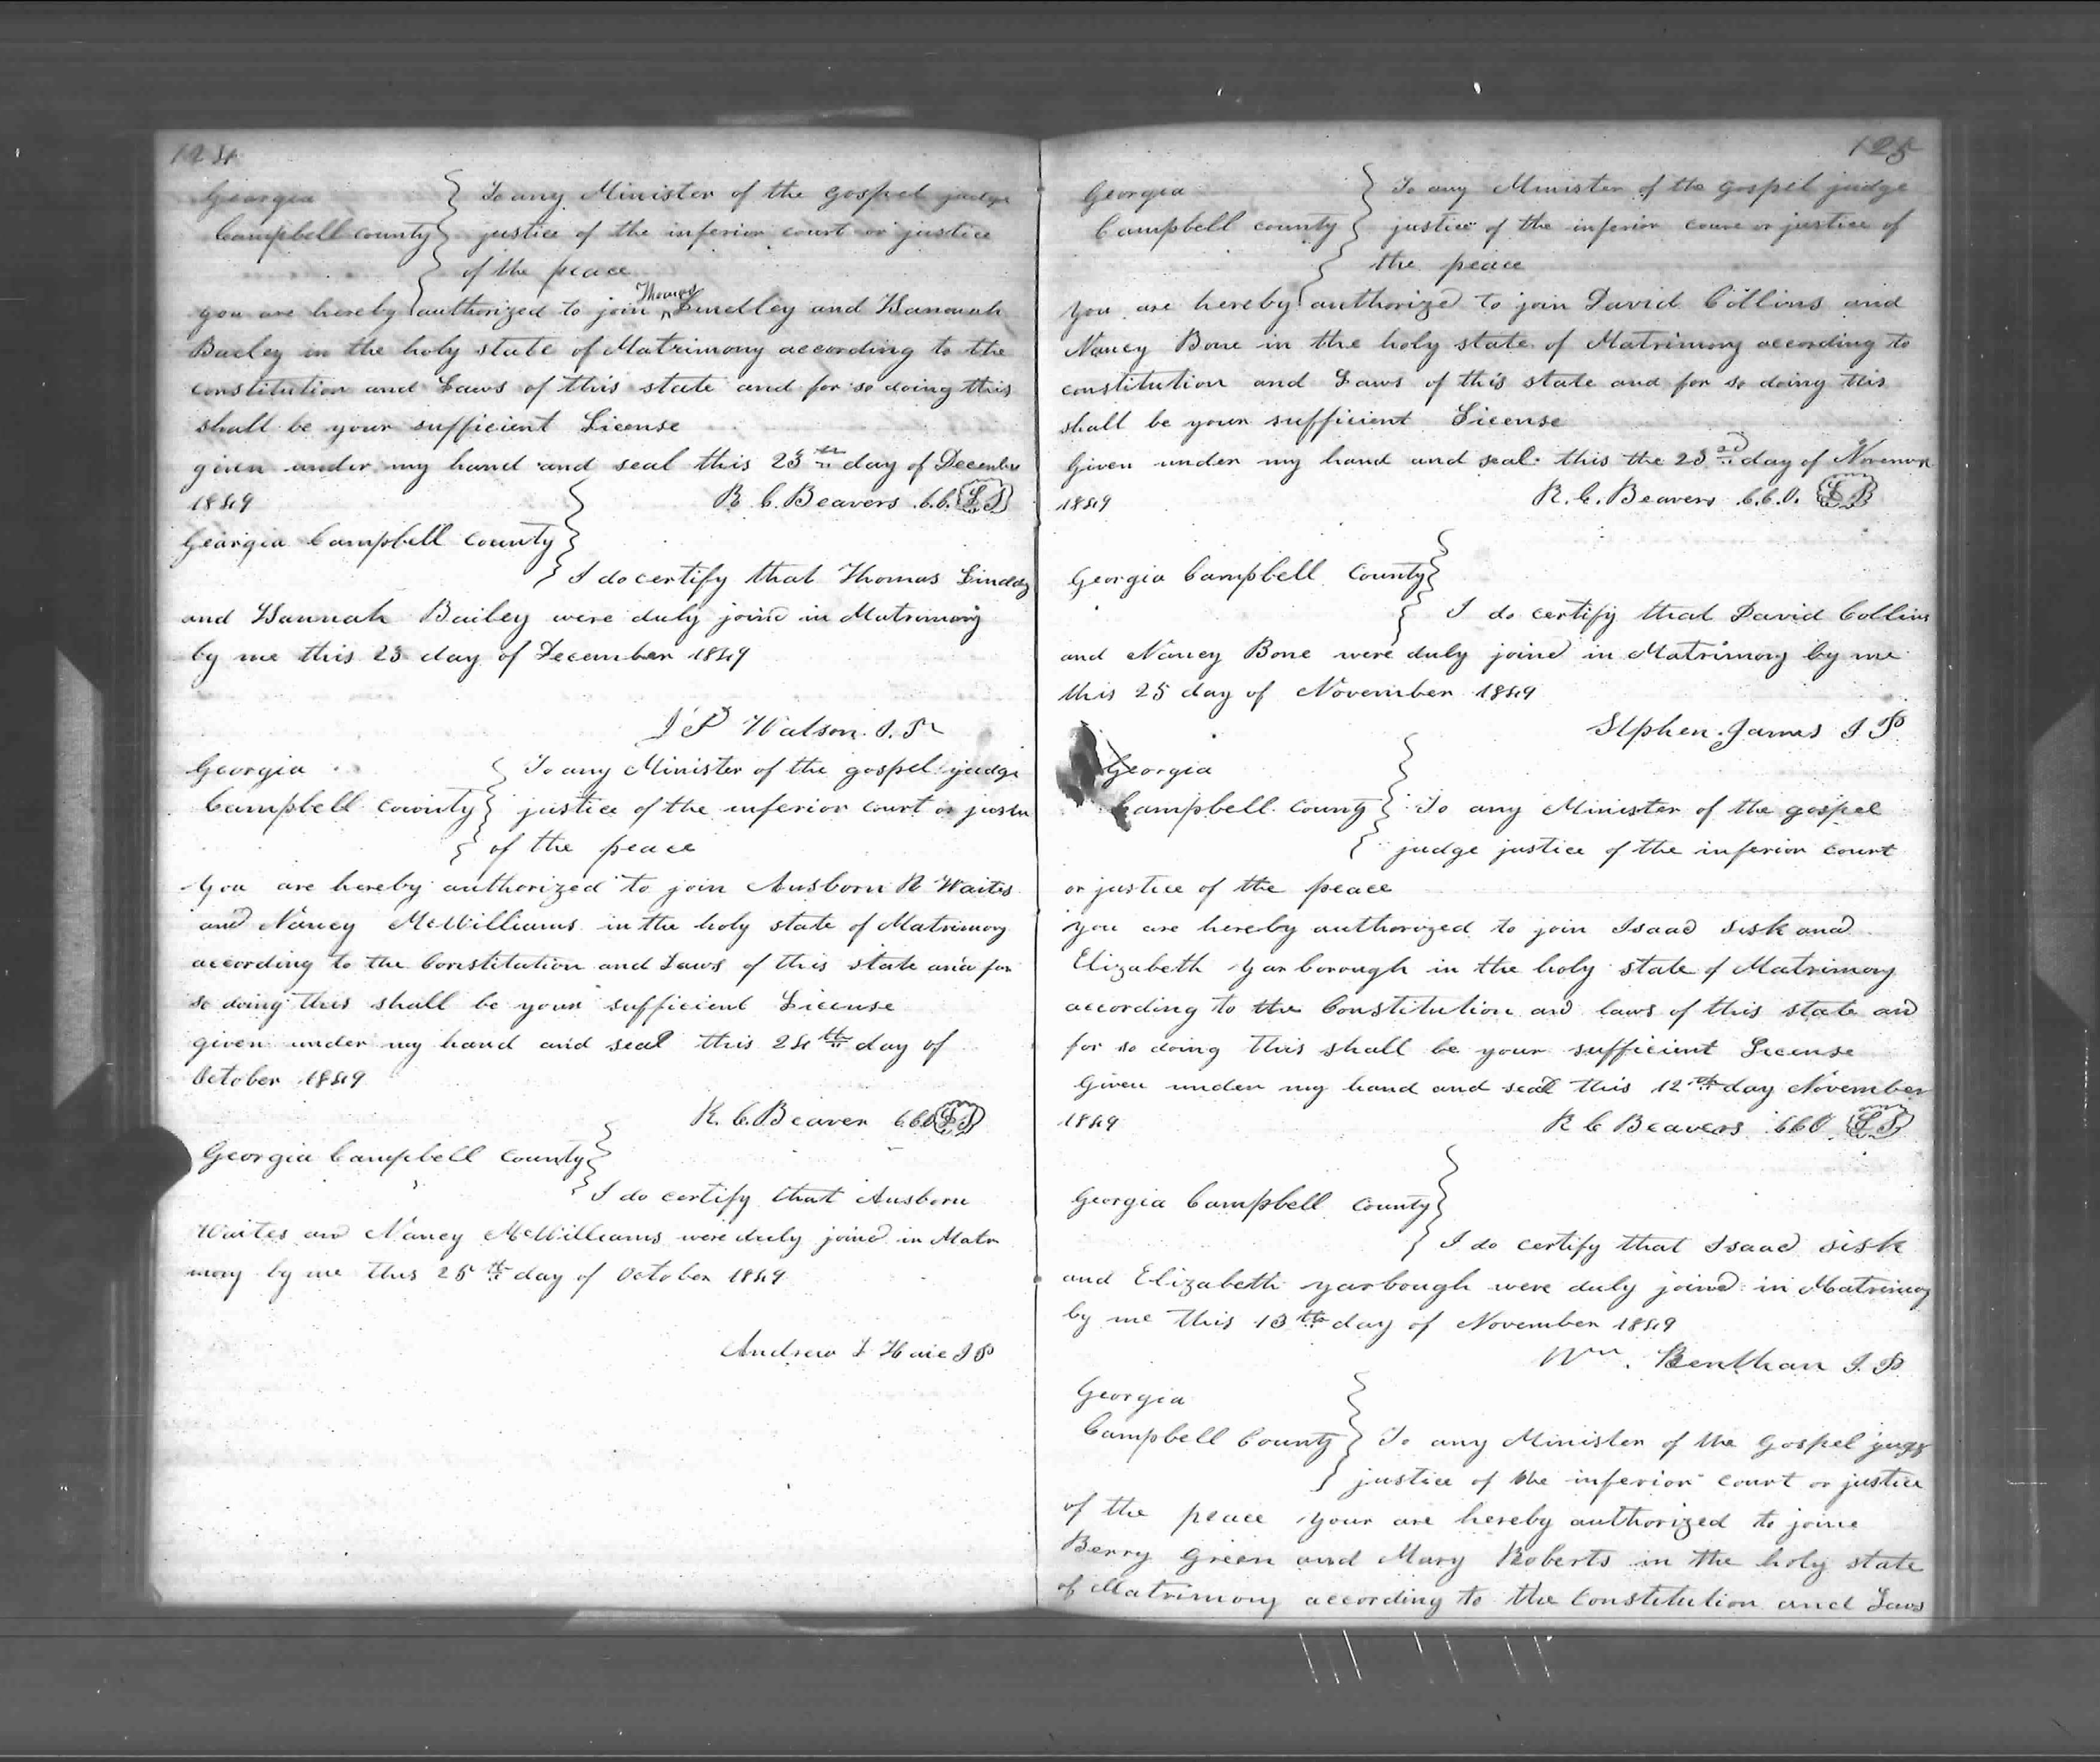 124
Georgia
Campbell county
To any Minister of the gospel judge
justice of the inferior court or justice
of the peace
you are hereby authorized to join Thomas Lindley and Hannah
Bailey in the holy state of Matrimony according to the
constitution and Laws of this state and for so doing this
shall be your sufficient License
given under my hand and seal this 23th day of December
1849 R. C. Beavers C.C. LS
Georgia Campbell County
I do certify that Thomas Lindley
and Hannah Bailey were duly joind in Matrimony
by me this 23 day of December 1849
J P Watson J. P.
Georgia
Campbell County
To any Minister of the gospel judge
justice of the inferior court or justi
of the peace
You are hereby authorized to join Ausborn R Waites
and Nancy McWilliams in the holy state of Matrimony
according to the Constitution and Laws of this state and for
so doing this shall be your sufficient License
given under my hand and seal this 24th day of
October 1849
R. C. Beaver CCO LS
Georgia Campbell County
I do certify that Ausborn
Waites and Nancy McWilliams were duly joind in Matri
mony by me this 25th day of October 1849
Andrew J P
125
Georgia
Campbell county
To any Minister of the gospel judge
justice of the inferior court or justice of
the peace
You are hereby authorized to join David Collins and
Nancy Bone in the holy state of Matrimony according to
constitution and Laws of this state and for so doing this
shall be your sufficient License
Given under my hand and seal this the 23rd day of November
1849 R. C. Beavers C.C.O. LS
Georgia Campbell County
I do certify that David Collins
and Nancy Bone were duly joind in Matrimony by me
this 25 day of November 1849
Stphen James J P
Georgia
Campbell County
To any Minister of the gospel
judge justice of the inferior court
or justice of the peace
you are hereby authorized to join Isaac Sisk and
Elizabeth Yarborough in the holy state of Matrimony
according to the Constitution and laws of this state and
for so doing this shall be your sufficient License
Given under my hand and seal this 12th day November
1849 R C Beavers CCO LS
Georgia Campbell County
I do certify that Isaac Sisk
and Elizabeth yarbough were duly joind in Matrimony
by me this 13th day of November 1849
Wm. Benthan J. P.
Georgia
Campbell County
To any Minister of the Gospel judge
justice of the inferior court or justice
of the peace your are hereby authorized to joine
Berry Green and Mary Roberts in the holy state
of Matrimony according to the Constitution and Laws